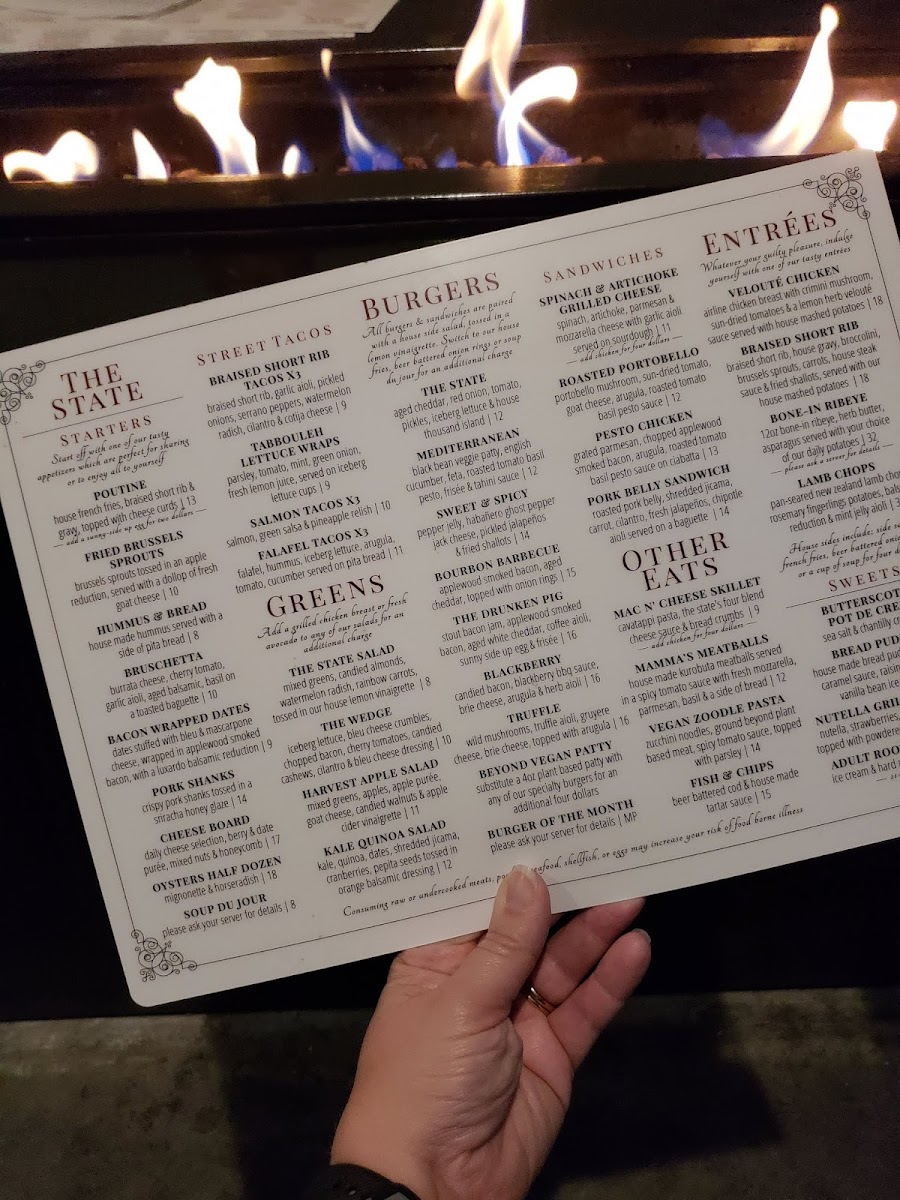 THE
STATE
STARTERS
Start off with one of our tasty
appetizers which are perfect for sharing
or to enjoy all to yourself
POUTINE
house french fries, braised short rib &
gravy, topped with cheese curds | 13
add a sunny-side up egg for two dollars
FRIED BRUSSELS
SPROUTS
brussels sprouts tossed in an apple
reduction, served with a dollop of fresh
goat cheese | 10
HUMMUS & BREAD
house made hummus served with a
side of pita bread | 8
BRUSCHETTA
burrata cheese, cherry tomato,
garlic aioli, aged balsamic, basil on
a toasted baguette | 10
BACON WRAPPED DATES
dates stuffed with bleu & mascarpone
cheese, wrapped in applewood smoked
bacon, with a luxardo balsamic reduction | 9
PORK SHANKS
crispy pork shanks tossed in a
sriracha honey glaze | 14
CHEESE BOARD
daily cheese selection, berry & date
purée, mixed nuts & honeycomb | 17
OYSTERS HALF DOZEN
mignonette & horseradish | 18
SOUP DU JOUR
please ask your server for details | 8
STREET TACOS
BRAISED SHORT RIB
TACOS X3
braised short rib, garlic aioli, pickled
onions, serrano peppers, watermelon
radish, cilantro & cotija cheese | 9
TABBOULEH
LETTUCE WRAPS
parsley, tomato, mint, green onion,
fresh lemon juice, served on iceberg
lettuce cups | 9
SALMON TACOS X3
salmon, green salsa & pineapple relish | 10
FALAFEL TACOS X3
falafel, hummus, iceberg lettuce, arugula,
tomato, cucumber served on pita bread | 11
GREENS
Add a grilled chicken breast or fresh
avocado to any of our salads for an
additional charge
THE STATE SALAD
mixed greens, candied almonds,
watermelon radish, rainbow carrots,
tossed in our house lemon vinaigrette | 8
THE WEDGE
iceberg lettuce, bleu cheese crumbles,
chopped bacon, cherry tomatoes, candied
cashews, cilantro & bleu cheese dressing | 10
HARVEST APPLE SALAD
mixed greens, apples, apple purée,
goat cheese, candied walnuts & apple
cider vinaigrette | 11
KALE QUINOA SALAD
kale, quinoa, dates, shredded jicama,
cranberries, pepita seeds tossed in
orange balsamic dressing | 12
BURGERS
All burgers & sandwiches are paired
with a house side salad, tossed in a
lemon vinaigrette. Switch to our house
fries, beer battered onion rings or soup
du jour for an additional charge
THE STATE
aged cheddar, red onion, tomato,
pickles, iceberg lettuce & house
thousand island | 12
MEDITERRANEAN
black bean veggie patty, english
cucumber, feta, roasted tomato basil
pesto, frisée & tahini sauce | 12
SWEET & SPICY
pepper jelly, habañero ghost pepper
jack cheese, pickled jalapeños
& fried shallots | 14
BOURBON BARBECUE
applewood smoked bacon, aged
cheddar, topped with onion rings | 15
THE DRUNKEN PIG
stout bacon jam, applewood smoked
bacon, aged white cheddar, coffee aioli,
sunny side up egg & frisée | 16
BLACKBERRY
candied bacon, blackberry bbq sauce,
brie cheese, arugula & herb aioli | 16
TRUFFLE
wild mushrooms, truffle aioli, gruyere
cheese, brie cheese, topped with arugula | 16
BEYOND VEGAN PATTY
substitute a 4oz plant based patty with
any of our specialty burgers for an
additional four dollars
BURGER OF THE MONTH
please ask your server for details | MP
SANDWICHES
SPINACH & ARTICHOKE
GRILLED CHEESE
spinach, artichoke, parmesan &
mozzarella cheese with garlic aioli
served on sourdough | 11
add chicken for four dollars
ROASTED PORTOBELLO
portobello mushroom, sun-dried tomato,
goat cheese, arugula, roasted tomato
basil pesto sauce | 12
PESTO CHICKEN
grated parmesan, chopped applewood
smoked bacon, arugula, roasted tomato
basil pesto sauce on ciabatta | 13
PORK BELLY SANDWICH
roasted pork belly, shredded jicama,
carrot, cilantro, fresh jalapeños, chipotle
aioli served on a baguette | 14
OTHER
EATS
MAC N' CHEESE SKILLET
cavatappi pasta, the state's four blend
cheese sauce & bread crumbs | 9
add chicken for four dollars
MAMMA'S MEATBALLS
house made Kurobuta meatballs served
in a spicy tomato sauce with fresh mozzarella,
parmesan, basil & a side of bread | 12
VEGAN ZOODLE PASTA
zucchini noodles, ground beyond plant
based meat, spicy tomato sauce, topped
with parsley | 14
FISH & CHIPS
beer battered cod & house made
tartar sauce | 15
ENTRÉES
Whatever your guilty pleasure, indulge
yourself with one of our tasty entrées
VELOUTÉ CHICKEN
airline chicken breast with crimini mushroom,
sun-dried tomatoes & a lemon herb velouté
sauce served with house mashed potatoes | 18
BRAISED SHORT RIB
braised short rib, house gravy, broccolini,
brussels sprouts, carrots, house steak
sauce & fried shallots, served with our
house mashed potatoes | 18
BONE-IN RIBEYE
12oz bone-in ribeye, herb butter,
asparagus served with your choice
of our daily potatoes | 32
please ask a server for details
LAMB CHOPS
pan-seared new zealand lamb
rosemary fingerling potatoes,
reduction & mint jelly aioli |
House sides include: side
french fries, beer battered
or a cup of soup for four
SWEETS
POT DE
sea salt & chantilly
BREAD
house made bread
caramel sauce,
vanilla bean ice
NUTELLA
nutella, strawberries,
topped with
ADULT
ice cream & hard
Consuming raw or undercooked meats, seafood, shellfish, or eggs may increase your risk of food borne illness